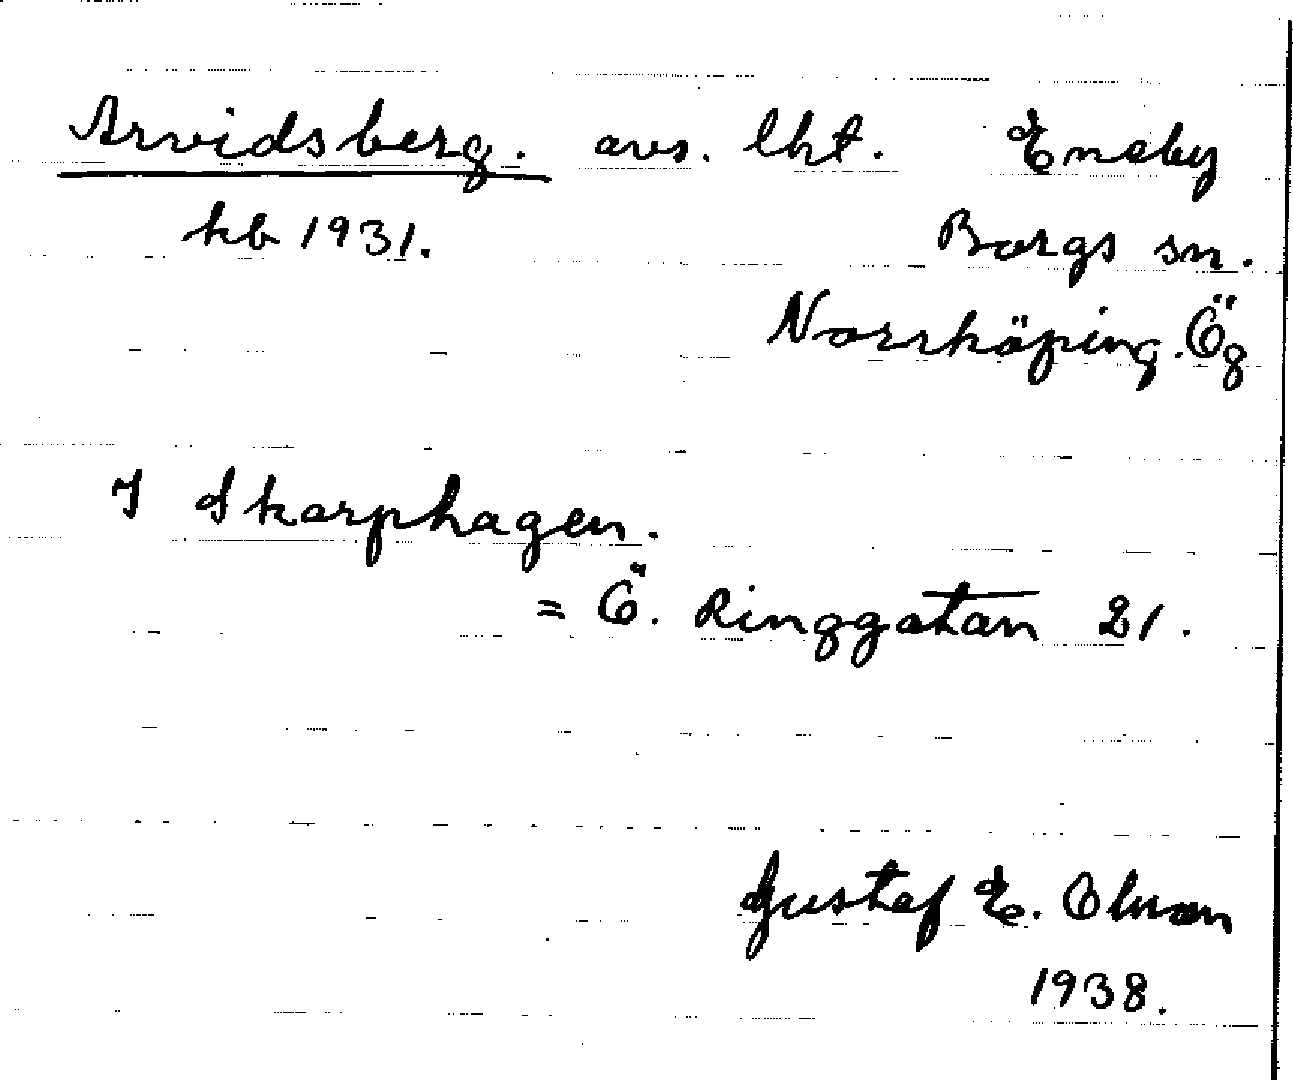 Arvidsberg. avs. lht. Eneby
kb 1931. Borgs sn.
Norrköping. Ög
I Skarphagen.
= Ö. Ringgatan 21.
Gustaf E. Olman
1938.